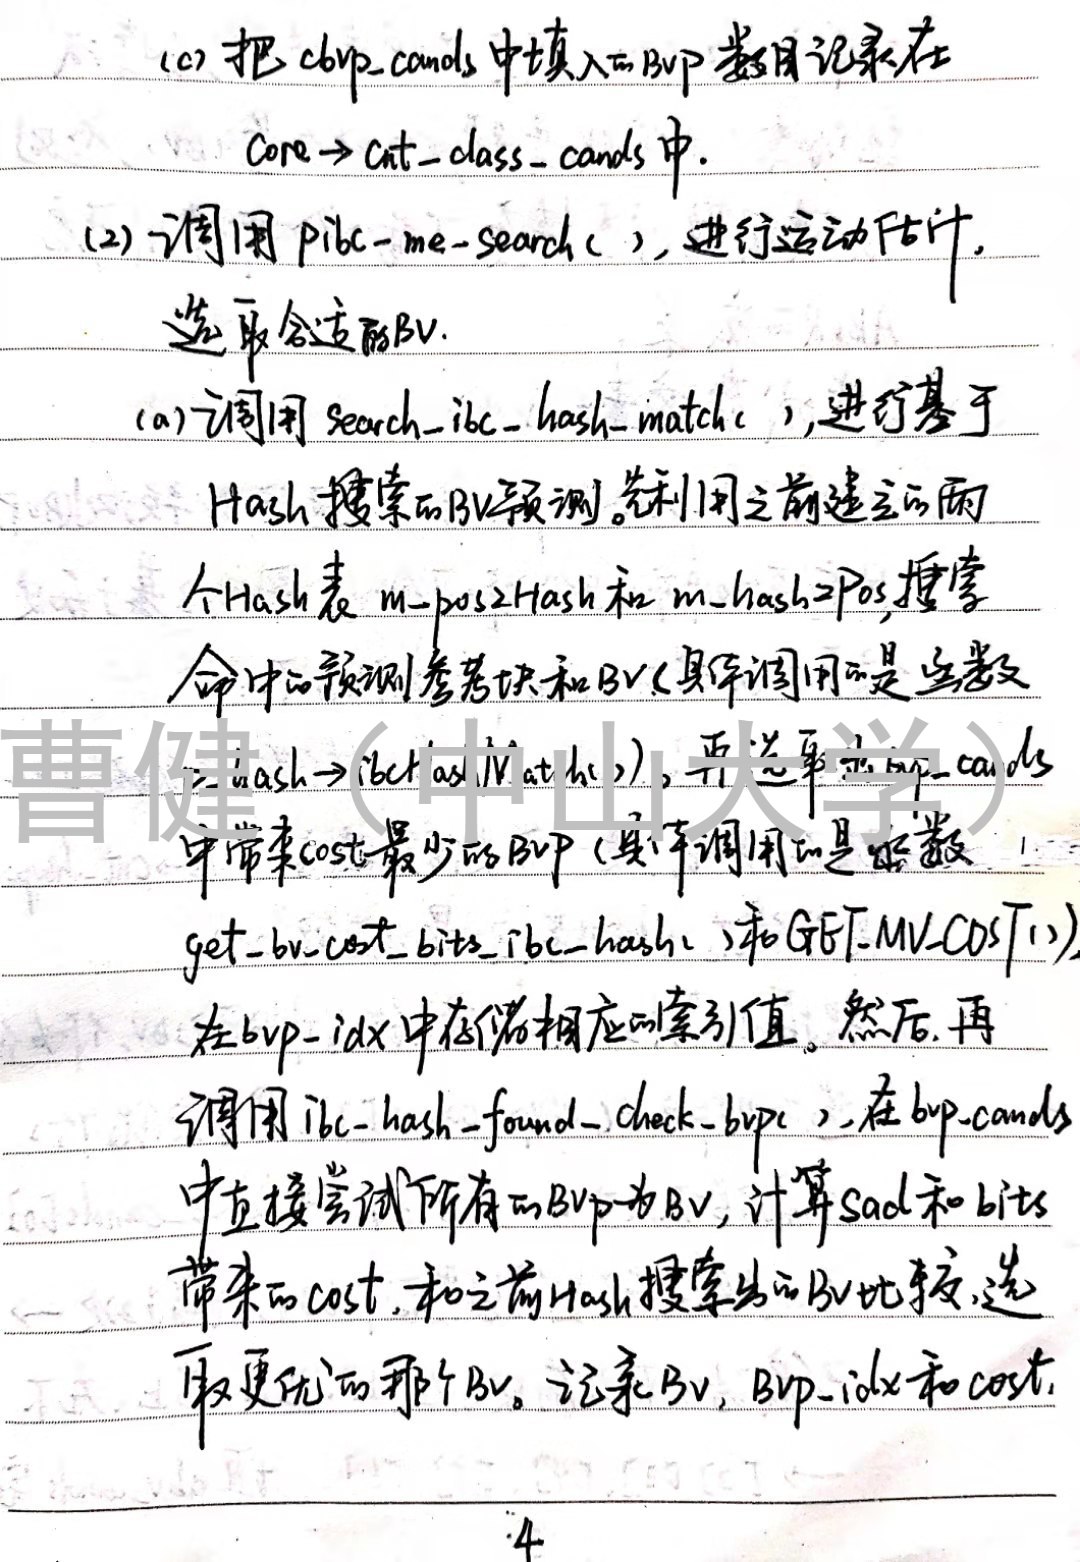 (c) 把 cbvp_cands 中填入的Bvp 数目记录在
Core → cnt_class_cands 中.
(2) 调用 pibc-me-search( ), 进行运动估计,
选取合适的BV.
(a) 调用 search_ibc_hash_match( ),进行基于
Hash 搜索的BV预测。先利用之前建立的两
个Hash表 m_pos2Hash 和 m_hash2Pos,搜索
命中的预测参考块和BV(具体调用的是函数
hash→ibcHashMatch()), 再选取出bvp_cands
曹健（中山大学）
中带来cost最少的BVP (具体调用的是函数
get_bv_cost_bits_ibc_hash( )和GET_MV_COST()),
在bvp_idx中存储相应的索引值。然后,再
调用ibc_hash_found_check_bvp( ),在bvp_cands
中直接尝试所有的Bvp为BV, 计算sad和bits
带来的cost, 和之前Hash搜索出的BV比较,选
取更优的那个BV。记录BV, Bvp_idx和cost,
4